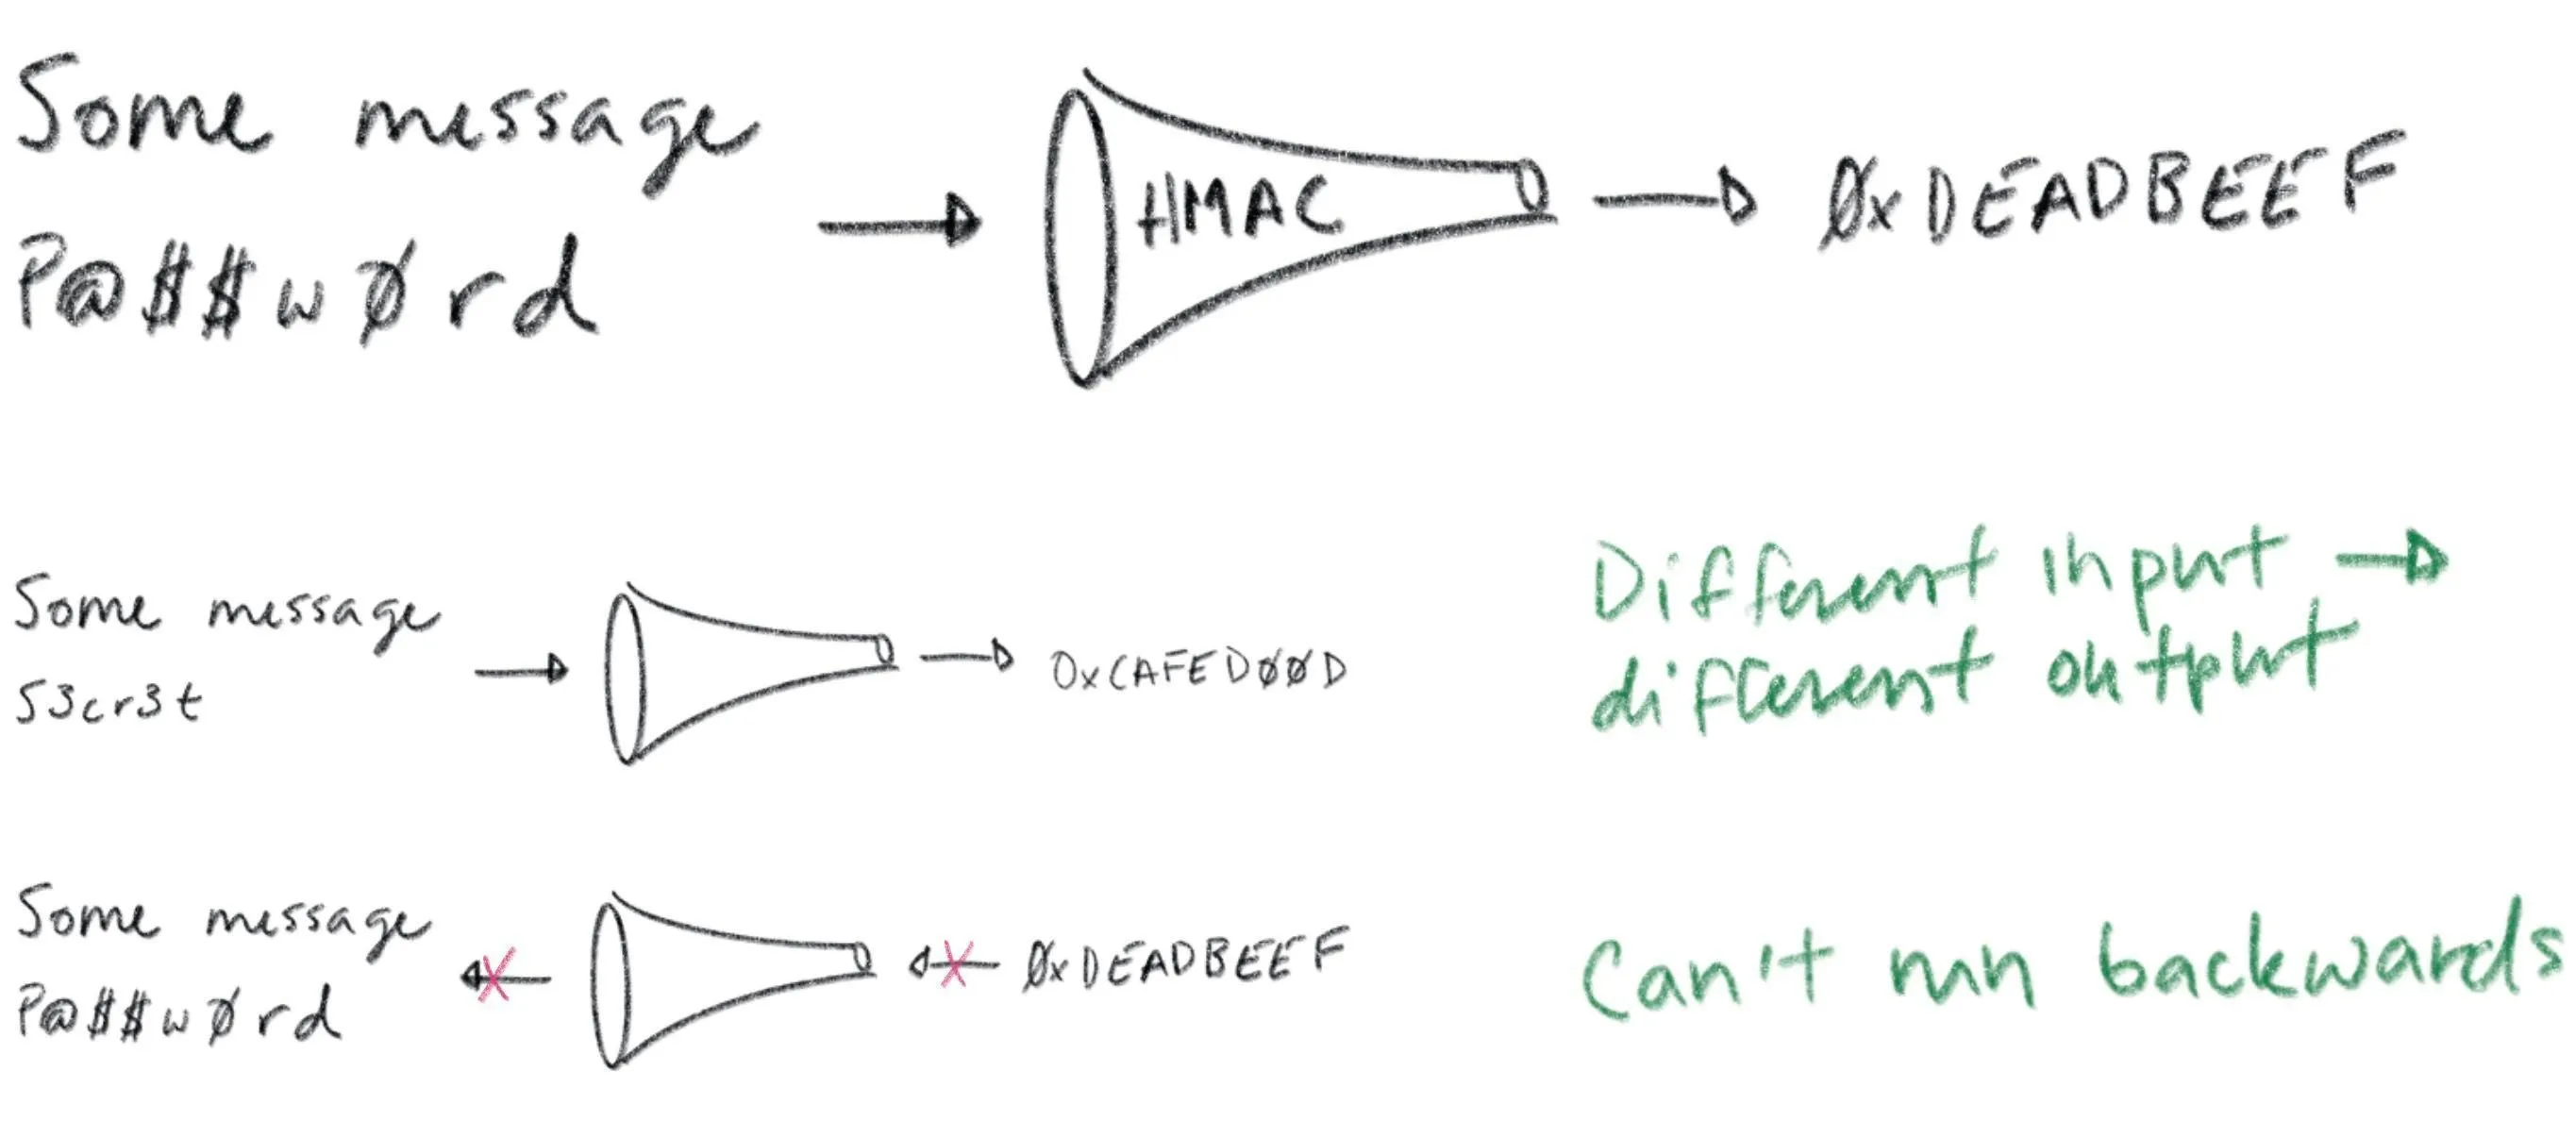 Some message
P@$$wØrd
HMAC
ØxDEADBEEF
Some message
S3cr3t
0xCAFED00D
Different input
different output
Some message
P@$$wØrd
ØxDEADBEEF
Can't run backwards